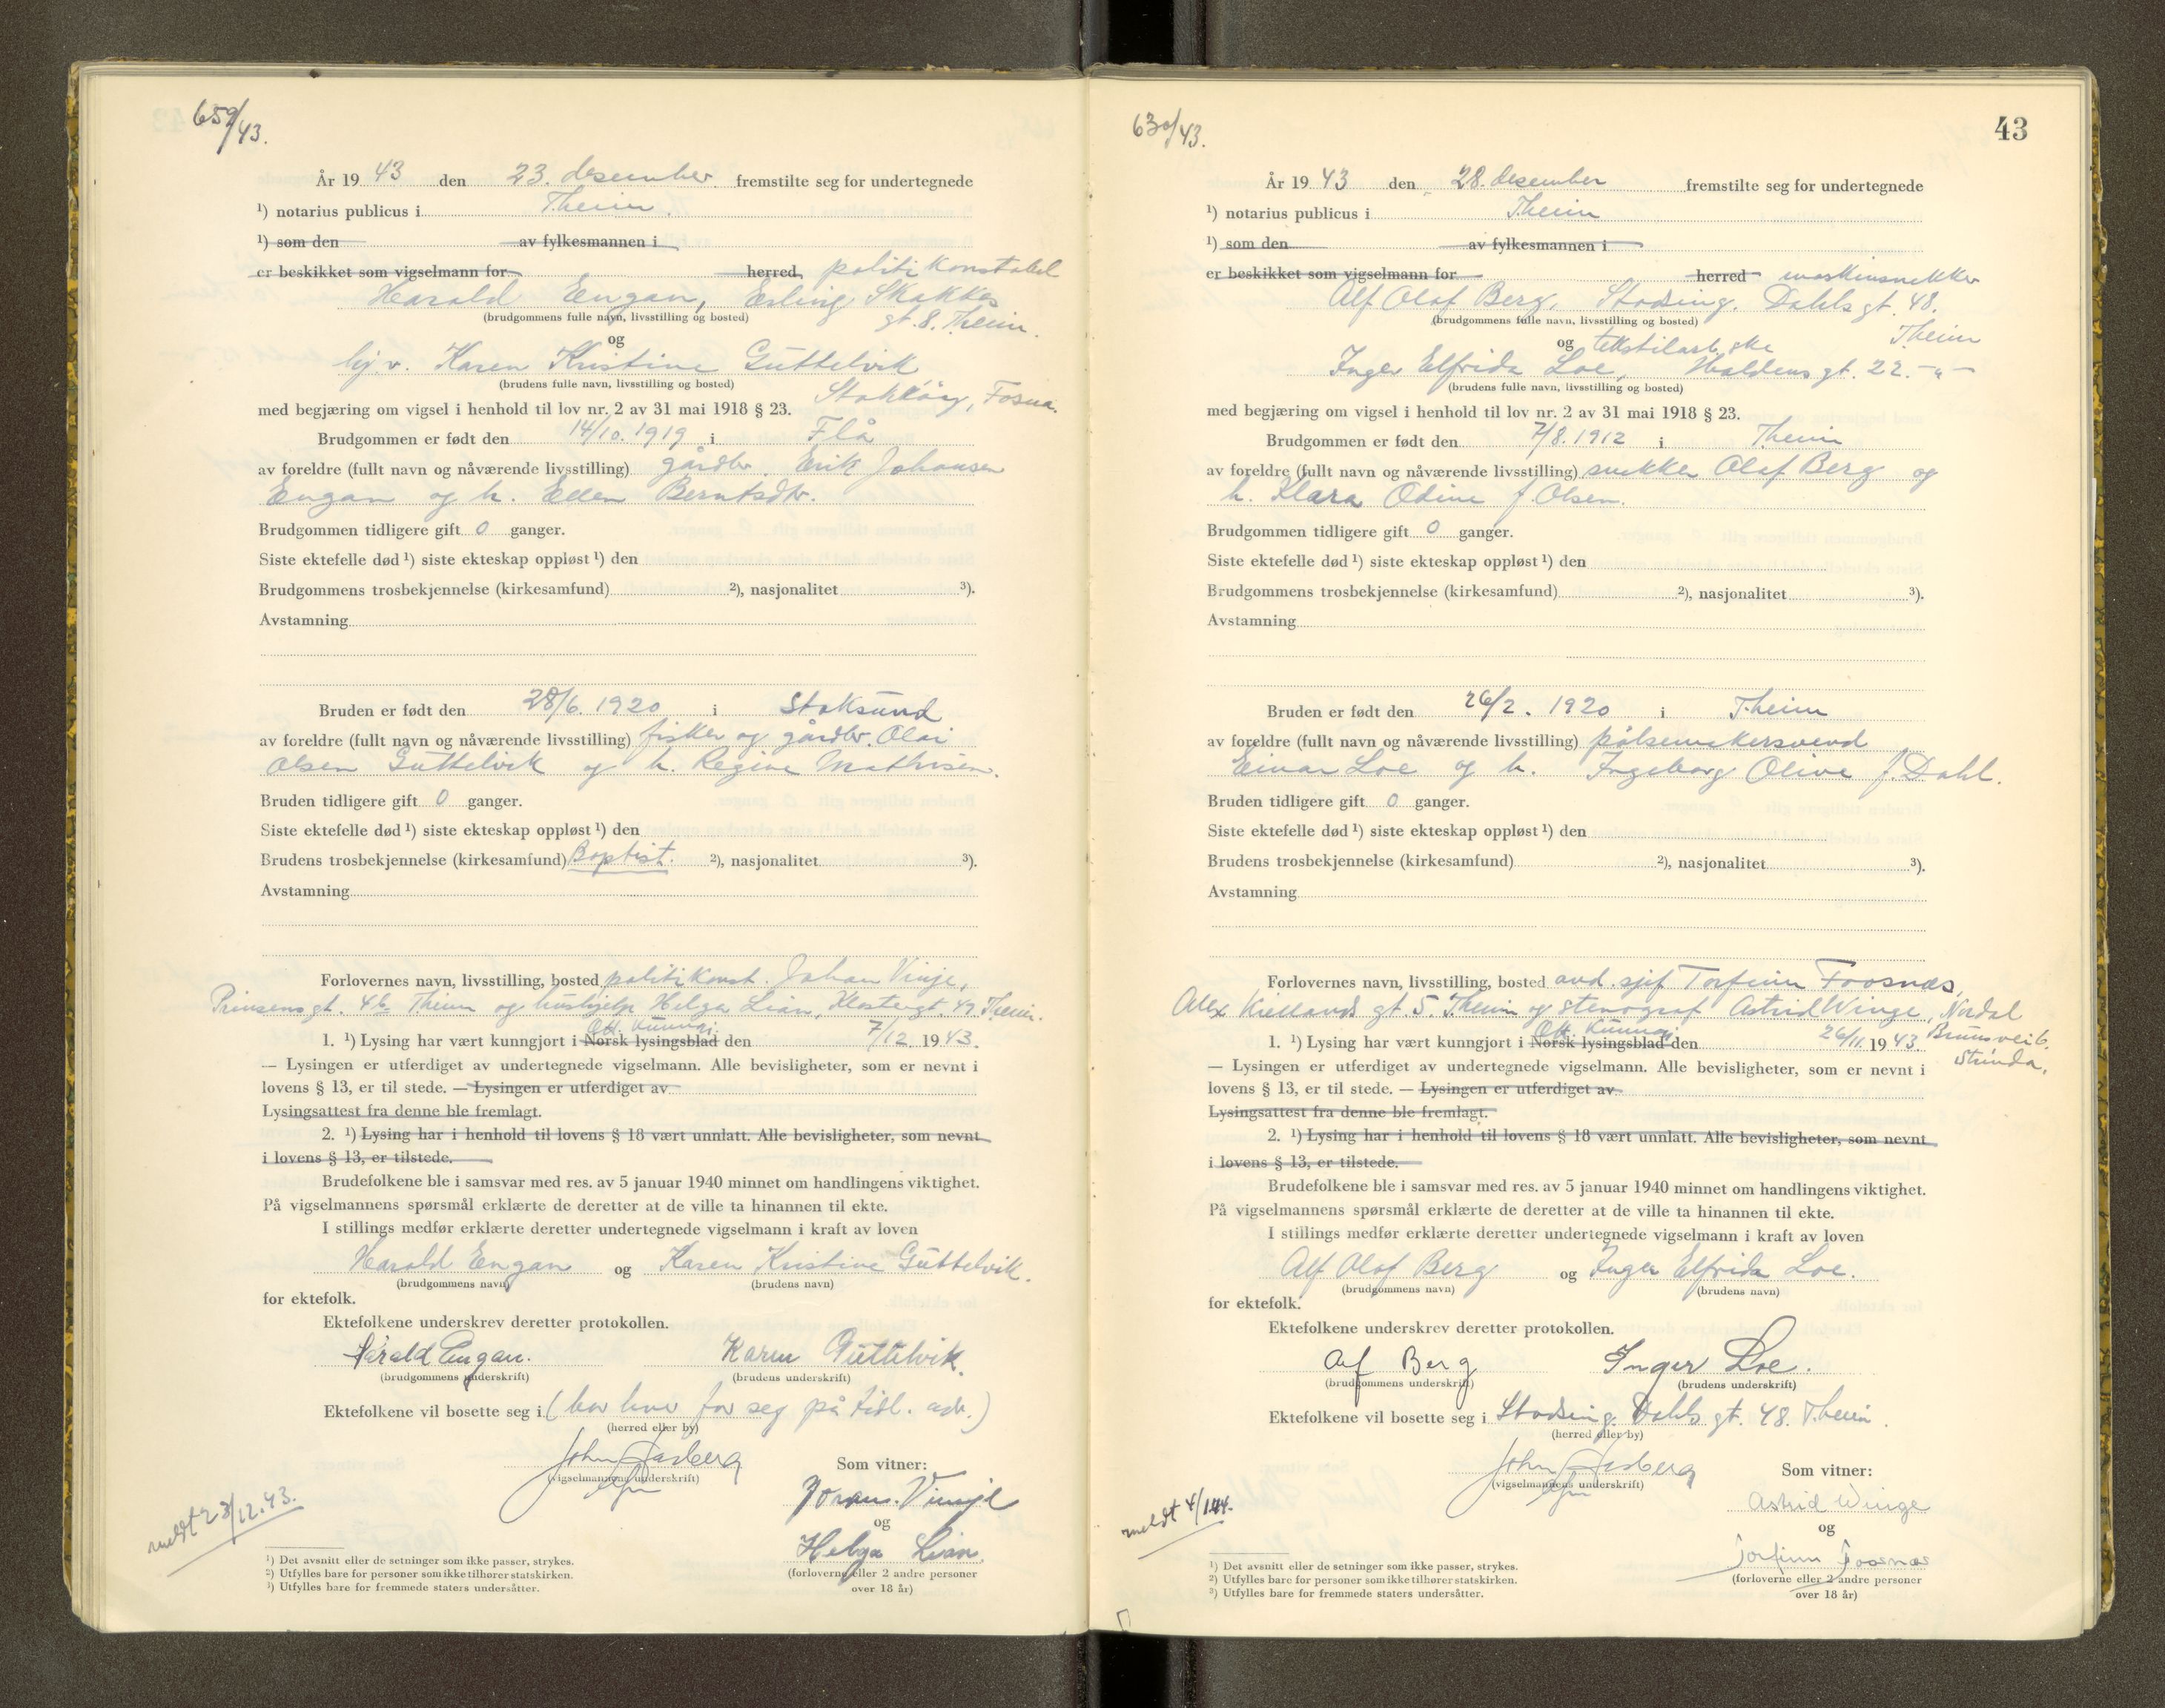 659/43.
År 19 43 den 23. desember fremstilte seg for undertegnede
¹) notarius publicus i Theim.
¹) som den av fylkesmannen i
er beskikket som vigselmann for herred politikonstabel
Harald Engan, Erling Skakkes
(brudgommens fulle navn, livsstilling og bosted) gt. 8. Theim.
og
hj.v. Karen Kristine Guttelvik
(brudens fulle navn, livsstilling og bosted)
Stokköy, Fosna.
med begjæring om vigsel i henhold til lov nr. 2 av 31 mai 1918 § 23.
Brudgommen er født den 14/10. 1919 i Flå
av foreldre (fullt navn og nåværende livsstilling) gårdbr. Erik Johansen
Engan og h. Ellen Berntsdtr.
Brudgommen tidligere gift 0 ganger.
Siste ektefelle død ¹) siste ekteskap oppløst ¹) den
Brudgommens trosbekjennelse (kirkesamfund) ²), nasjonalitet ³).
Avstamning
Bruden er født den 28/6. 1920 i Stoksund
av foreldre (fullt navn og nåværende livsstilling) fisker og gårdbr. Olai
Olsen Guttelvik og h. Regine Mathisen.
Bruden tidligere gift 0 ganger.
Siste ektefelle død ¹) siste ekteskap oppløst ¹) den
Brudens trosbekjennelse (kirkesamfund) Baptist. ²), nasjonalitet ³).
Avstamning
Forlovernes navn, livsstilling, bosted politikonst. Johan Vinje,
Prinsens gt. 4b Theim og hushjelp Helga Lian, Klostergt. 47 Theim.
Off. kunngj.
1. ¹) Lysing har vært kunngjort i Norsk lysingsblad den 7/12 1943.
— Lysingen er utferdiget av undertegnede vigselmann. Alle bevisligheter, som er nevnt i
lovens § 13, er til stede. — Lysingen er utferdiget av
Lysingsattest fra denne ble fremlagt.
2. ¹) Lysing har i henhold til lovens § 18 vært unnlatt. Alle bevisligheter, som nevnt
i lovens § 13, er tilstede.
Brudefolkene ble i samsvar med res. av 5 januar 1940 minnet om handlingens viktighet.
På vigselmannens spørsmål erklærte de deretter at de ville ta hinannen til ekte.
I stillings medfør erklærte deretter undertegnede vigselmann i kraft av loven
Harald Engan og Karen Kristine Guttelvik.
(brudgommens navn) (brudens navn)
for ektefolk.
Ektefolkene underskrev deretter protokollen.
Harald Engan. Karen Guttelvik.
(brudgommens underskrift) (brudens underskrift)
Ektefolkene vil bosette seg i (bor hver for seg på tidl. adr.)
(herred eller by)
John Aasberg Som vitner:
(vigselmannens underskrift)
Johan Vinje
og
meldt 23/12.43.
Helga Lian
¹) Det avsnitt eller de setninger som ikke passer, strykes.
²) Utfylles bare for personer som ikke tilhører statskirken. (forloverne eller 2 andre personer
³) Utfylles bare for fremmede staters undersåtter. over 18 år)
630/43.
43
År 19 43 den 28. desember fremstilte seg for undertegnede
¹) notarius publicus i Theim
¹) som den av fylkesmannen i
er beskikket som vigselmann for herred maskinsnekker
Alf Olaf Berg, Stadsing. Dahls gt. 48.
(brudgommens fulle navn, livsstilling og bosted) Theim
og tekstilarb.ske
Inger Elfrida Loe, Waldems gt. 22. -"-
(brudens fulle navn, livsstilling og bosted)
med begjæring om vigsel i henhold til lov nr. 2 av 31 mai 1918 § 23.
Brudgommen er født den 7/8. 1912 i Theim
av foreldre (fullt navn og nåværende livsstilling) snekker Olaf Berg og
h. Klara Odine f. Olsen.
Brudgommen tidligere gift 0 ganger.
Siste ektefelle død ¹) siste ekteskap oppløst ¹) den
Brudgommens trosbekjennelse (kirkesamfund) ²), nasjonalitet ³).
Avstamning
Bruden er født den 26/2. 1920 i Theim
av foreldre (fullt navn og nåværende livsstilling) pølsemakersvend
Einar Loe og h. Ingeborg Olive f. Dahl.
Bruden tidligere gift 0 ganger.
Siste ektefelle død ¹) siste ekteskap oppløst ¹) den
Brudens trosbekjennelse (kirkesamfund) ²), nasjonalitet ³).
Avstamning
Forlovernes navn, livsstilling, bosted avd. sjef Torfinn Foosnæs,
Alex Kiellands gt 5. Theim og stenograf Astrid Winge, Nordal
Off. kunngj. Brunsvei 6.
1. ¹) Lysing har vært kunngjort i Norsk lysingsblad den 26/11. 1943.
Strinda.
— Lysingen er utferdiget av undertegnede vigselmann. Alle bevisligheter, som er nevnt i
lovens § 13, er til stede. — Lysingen er utferdiget av
Lysingsattest fra denne ble fremlagt.
2. ¹) Lysing har i henhold til lovens § 18 vært unnlatt. Alle bevisligheter, som nevnt
i lovens § 13, er tilstede.
Brudefolkene ble i samsvar med res. av 5 januar 1940 minnet om handlingens viktighet.
På vigselmannens spørsmål erklærte de deretter at de ville ta hinannen til ekte.
I stillings medfør erklærte deretter undertegnede vigselmann i kraft av loven
Alf Olaf Berg og Inger Elfrida Loe.
(brudgommens navn) (brudens navn)
for ektefolk.
Ektefolkene underskrev deretter protokollen.
Alf Berg Inger Loe.
(brudgommens underskrift) (brudens underskrift)
Ektefolkene vil bosette seg i Stadsing. Dahls gt. 48. Theim.
(herred eller by)
John Aasberg Som vitner:
(vigselmannens underskrift)
meldt 4/1.44.
Astrid Winge
og
Torfinn Foosnæs
¹) Det avsnitt eller de setninger som ikke passer, strykes.
²) Utfylles bare for personer som ikke tilhører statskirken. (forloverne eller 2 andre personer
³) Utfylles bare for fremmede staters undersåtter. over 18 år)